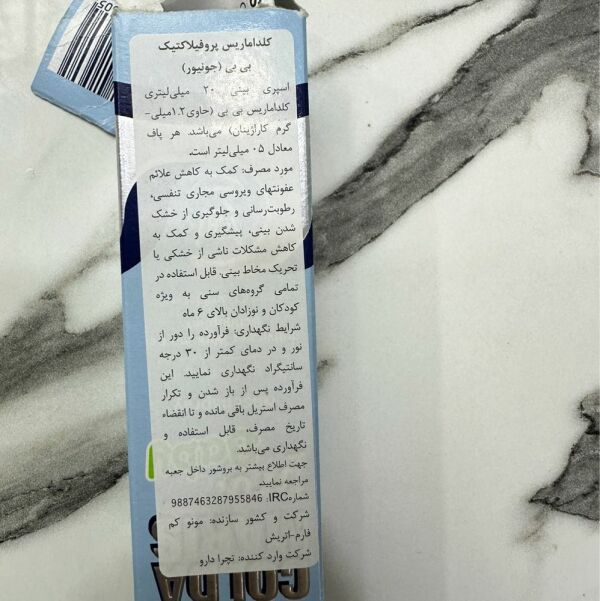 کلداماریس پروفیلاکتیک
بی بی (جونیور)
اسپری بینی ۲۰ میلی‌لیتری
کلداماریس بی بی (حاوی۱.۲میلی-
گرم کاراژینان) می‌باشد. هر پاف
معادل ۰۵ میلی‌لیتر است.
مورد مصرف: کمک به کاهش علائم
عفونتهای ویروسی مجاری تنفسی،
رطوبت‌رسانی و جلوگیری از خشک
شدن بینی، پیشگیری و کمک به
کاهش مشکلات ناشی از خشکی یا
تحریک مخاط بینی. قابل استفاده در
تمامی گروه‌های سنی به ویژه
کودکان و نوزادان بالای ۶ ماه
شرایط نگهداری: فرآورده را دور از
نور و در دمای کمتر از ۳۰ درجه
سانتیگراد نگهداری نمایید. این
فرآورده پس از باز شدن و تکرار
مصرف استریل باقی مانده و تا انقضاء
تاریخ مصرف، قابل استفاده و
نگهداری می‌باشد.
جهت اطلاع بیشتر به بروشور داخل جعبه
مراجعه نمایید.
شمارهIRC: 9887463287955846
شرکت و کشور سازنده: مونو کم
فارم-اتریش
شرکت وارد کننده: نچرا دارو
COLDA